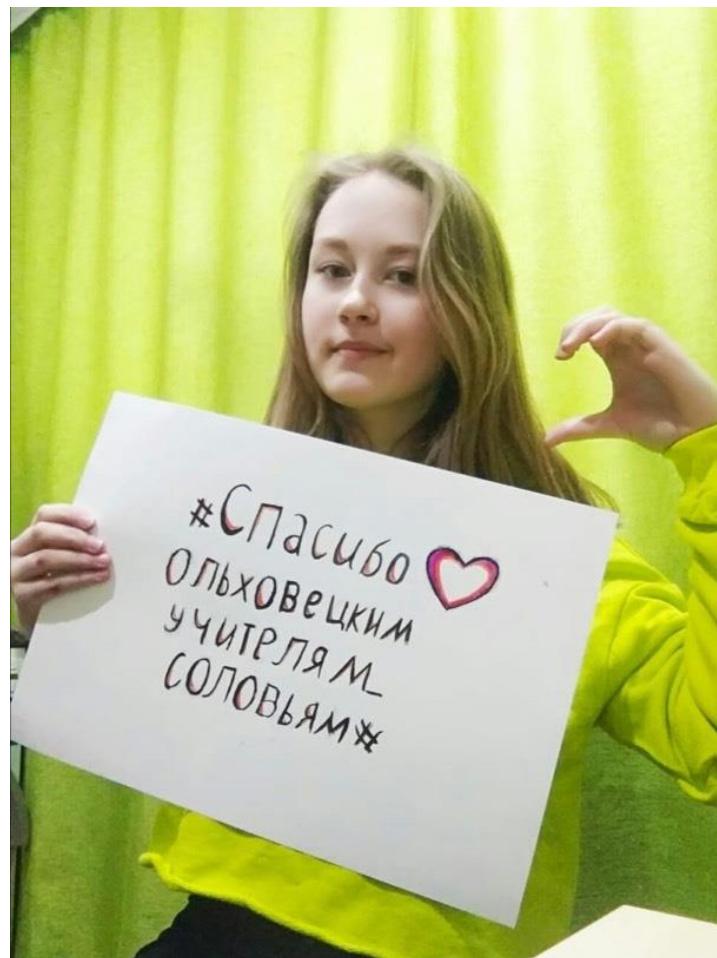 #Спасибо
ольховецким
учителям_
соловьям#